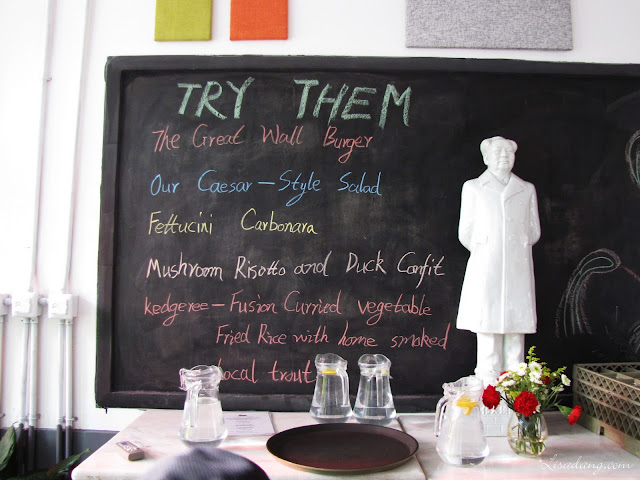 TRY THEM
The Great Wall Burger
Our Caesar-Style Salad
Fettucini Carbonara
Mushroom Risotto and Duck Confit
kedgeree-Fusion Curried vegetable
Fried Rice with home smoked
local trout
Lisaliang.com